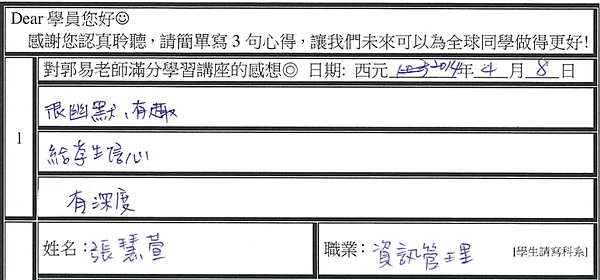 Dear 學員您好☺
感謝您認真聆聽，請簡單寫 3 句心得，讓我們未來可以為全球同學做得更好!
對郭易老師滿分學習講座的感想◎ 日期: 西元 2014 年 4 月 8 日
1
很幽默、有趣
給學生信心
有深度
姓名：張慧萱 職業：資訊管理 [學生請寫科系]